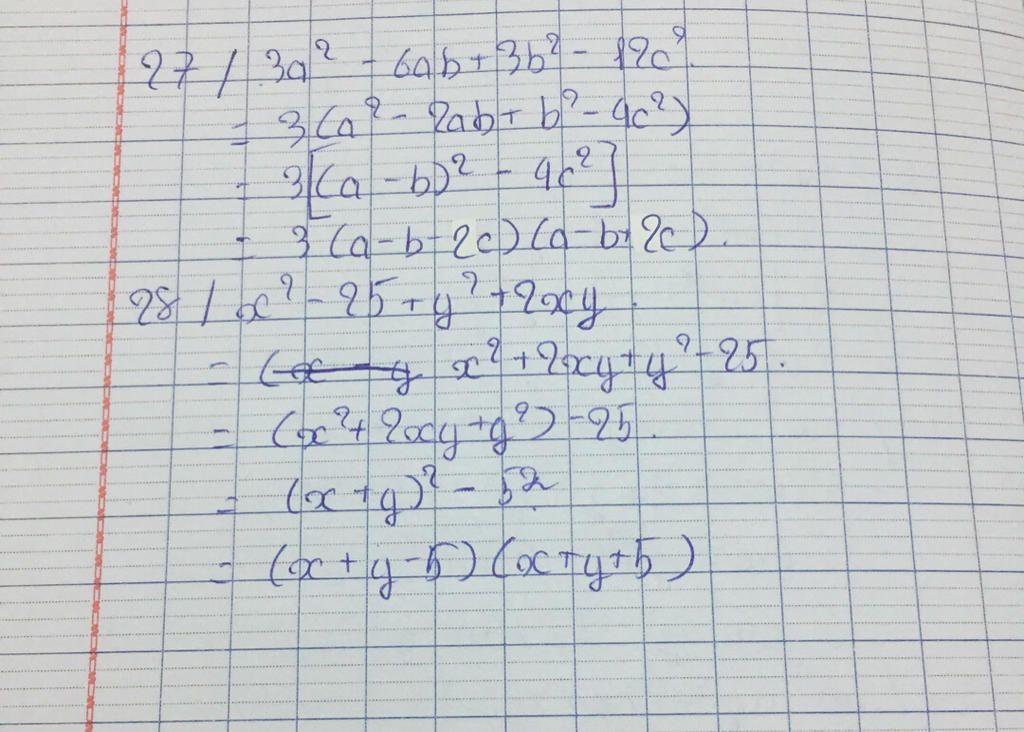 27 / 3a² - 6ab + 3b² - 12c².
= 3(a² - 2ab + b² - 4c²)
= 3[(a - b)² - 4c²]
= 3(a - b - 2c)(a - b + 2c).
28 / x² - 25 + y² + 2xy.
= (x - y x² + 2xy + y² - 25.
= (x² + 2xy + y²) - 25.
= (x + y)² - 5²
= (x + y - 5)(x + y + 5)